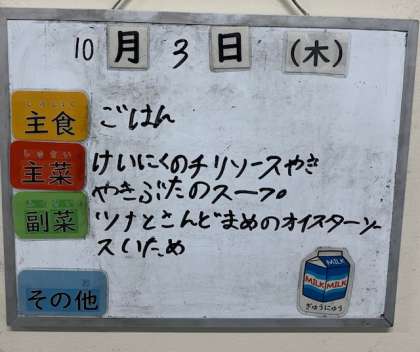 10月3日(木)
しゅしょく
主食 ごはん
しゅさい
主菜 けいにくのチリソースやき
やきぶたのスープ。
副菜 ツナとさんどまめのオイスターソー
スいため
その他
MILK
MILK MILK
ぎゅうにゅう